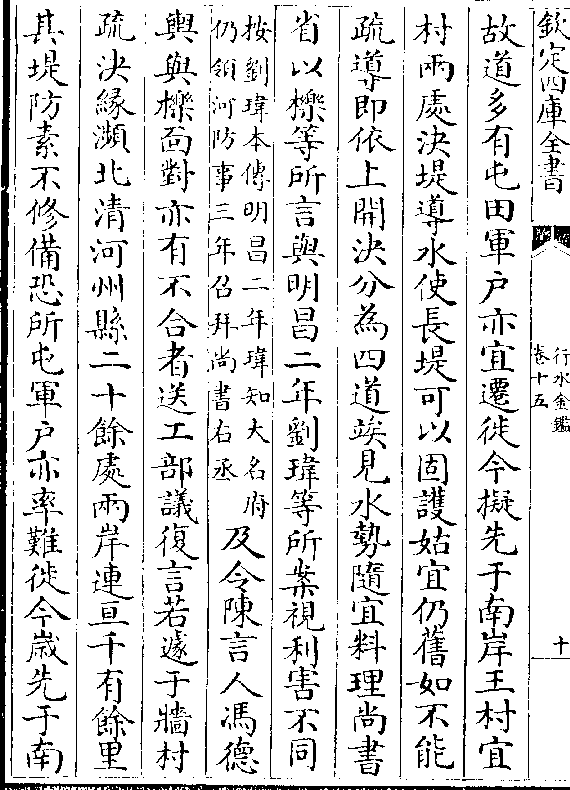 欽定四庫全書
行水金鑑
卷十五
十
故道多有屯田軍户亦宜遷徙今擬先于南岸王村宜
村兩處決堤導水使長堤可以固護姑宜仍舊如不能
疏導即依上開決分為四道竢見水勢隨宜料理尚書
省以櫟等所言與明昌二年劉瑋等所案視利害不同
按劉瑋本傳明昌二年瑋知大名府
仍領河防事三年召拜尚書右丞
及令陳言人馮德
輿與櫟面對亦有不合者送工部議復言若遽于牆村
疏決緣瀕北清河州縣二十餘處兩岸連亘千有餘里
其堤防素不修備恐所屯軍户亦率難徙今嵗先于南